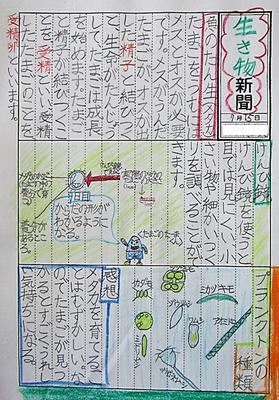 生き物新聞
7月15日
魚のたん生
たまごをうむには
メスとオスが必要
です。メスがうんだ
たまごがオスが出
した精子と結びつく
と生命がたんじょう
し、たまごは成長を
始めます。たまご
と精子が結びつくこ
とを受精といい、受精
したたまごのことを
受精卵といいます。
けんび鏡
けんび鏡を使うと
目では見にくい小
さい物や細かいつく
りを調べることがで
きます。
1日目
プランクトンの種類
ミカヅキモ
ミジンコ
ミドリムシ
感想
メダカを育てるこ
とはむずかしいな
のでたまごが見つ
かるとすごくうれしい
気持ちになる。